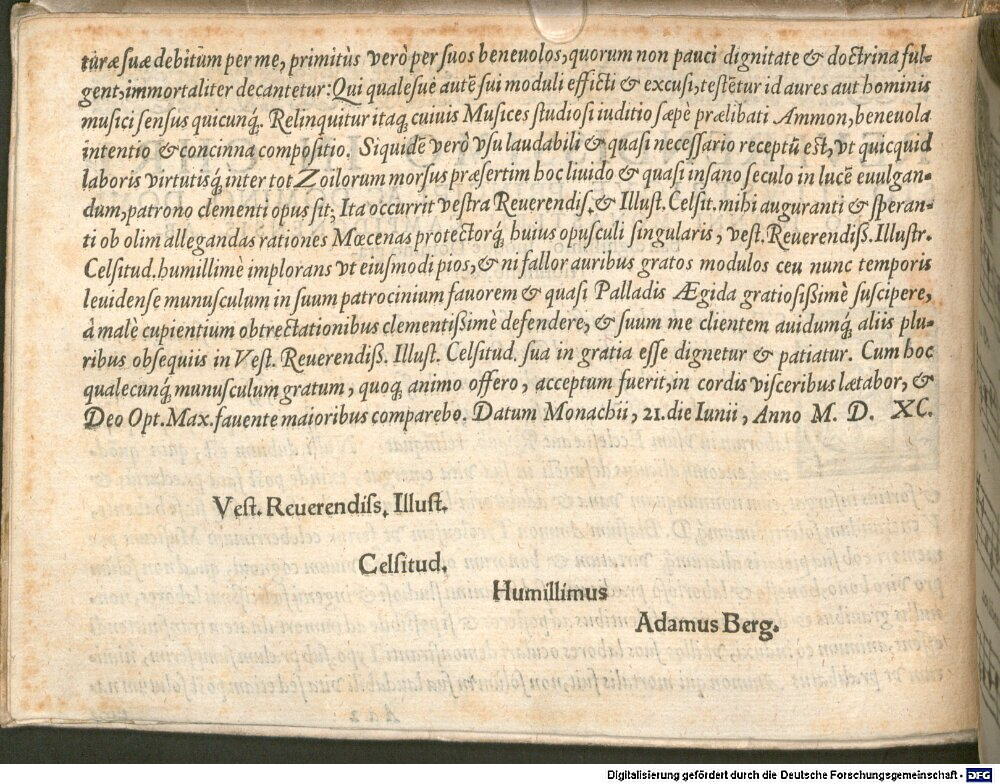 turæ suæ debitũm per me, primitùs verò per suos beneuolos, quorum non pauci dignitate & doctrina ful-
gent, immortaliter decantetur: Qui qualesuè autẽ sui moduli efficti & excusi, testẽtur id aures aut hominis
musici sensus quicunq́. Relinquitur itaq́ cuiuis Musices studiosi iuditio sæpè prælibati Ammon, beneuola
intentio & concinna compositio. Siquidẽ verò vsu laudabili & quasi necessario receptũ est, vt quicquid
laboris virtutisq́ inter tot Zoilorum morsus præsertim hoc liuido & quasi insano seculo in lucẽ euulgan-
dum, patrono clementi opus sit; Ita occurrit vestra Reuerendis. & Illust. Celsit. mihi auguranti & speran-
ti ob olim allegandas rationes Mœcenas protectorq́ huius opusculi singularis, vest. Reuerendiß. Illustr.
Celsitud. humillimè implorans vt eiusmodi pios, & ni fallor auribus gratos modulos ceu nunc temporis
leuidense munusculum in suum patrocinium fauorem & quasi Palladis Ægida gratiosißimè suscipere,
à malè cupientium obtrectationibus clementißimè defendere, & suum me clientem auidumq́ aliis plu-
ribus obsequiis in Vest. Reuerendiß. Illust. Celsitud. sua in gratia esse dignetur & patiatur. Cum hoc
qualecunq́ munusculum gratum, quoq́ animo offero, acceptum fuerit, in cordis visceribus lætabor, &
Deo Opt. Max. fauente maioribus comparebo. Datum Monachii, 21. die Iunii, Anno M. D. XC.
Vest. Reuerendiss. Illust.
Celsitud.
Humillimus
Adamus Berg.
Digitalisierung gefördert durch die Deutsche Forschungsgemeinschaft - DFG